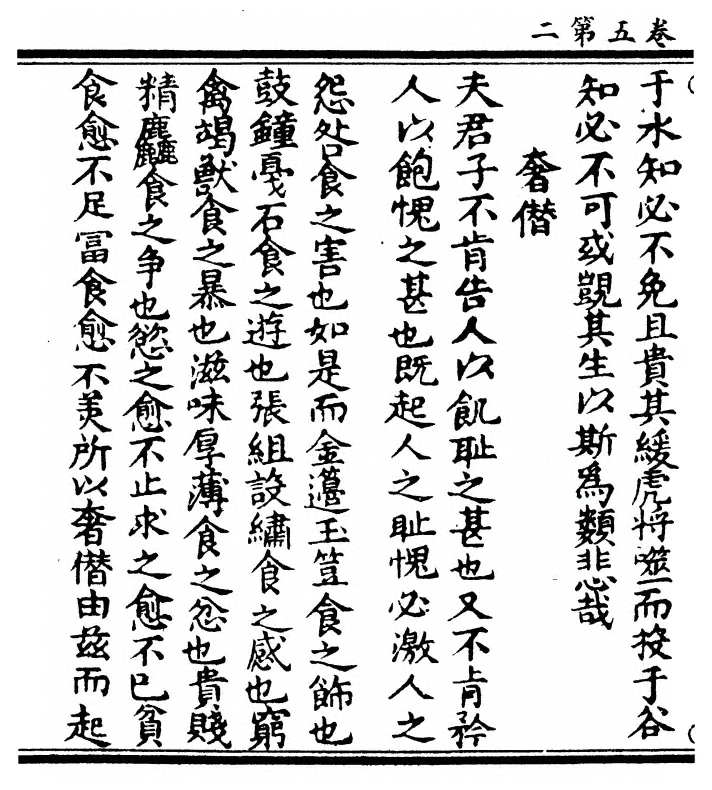 卷五第二
于水知必不免且貴其緩虎将噬而投于谷
知必不可或覬其生以斯爲類悲哉
奢僭
夫君子不肯告人以飢耻之甚也又不肯矜
人以飽愧之甚也既起人之耻愧必激人之
怨咎食之害也如是而金籩玉豆食之飾也
鼓鐘戛石食之遊也張組設繡食之感也窮
禽竭獸食之暴也滋味厚薄食之忿也貴賤
精麤食之争也慾之愈不止求之愈不已貧
食愈不足冨食愈不美所以奢僭由兹而起